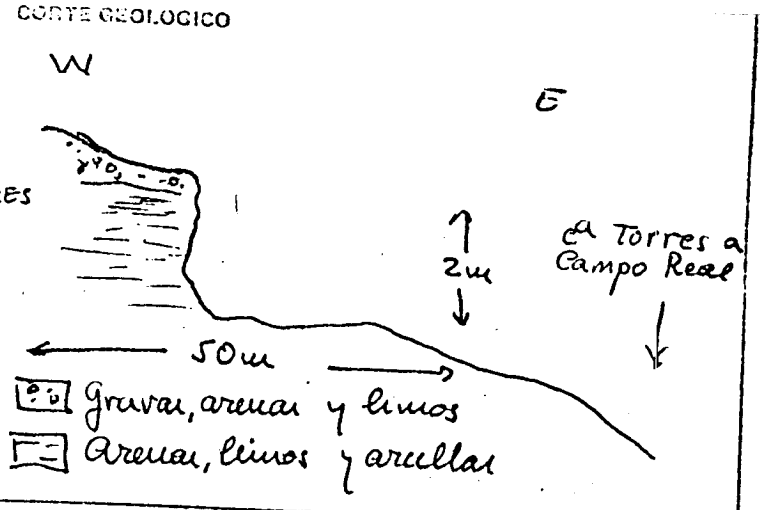 CORTE GEOLOGICO
W
E
ES
2m
Cª Torres a
Campo Real
50m
Gravas, arenas y limos
Arenas, limos y arcillas